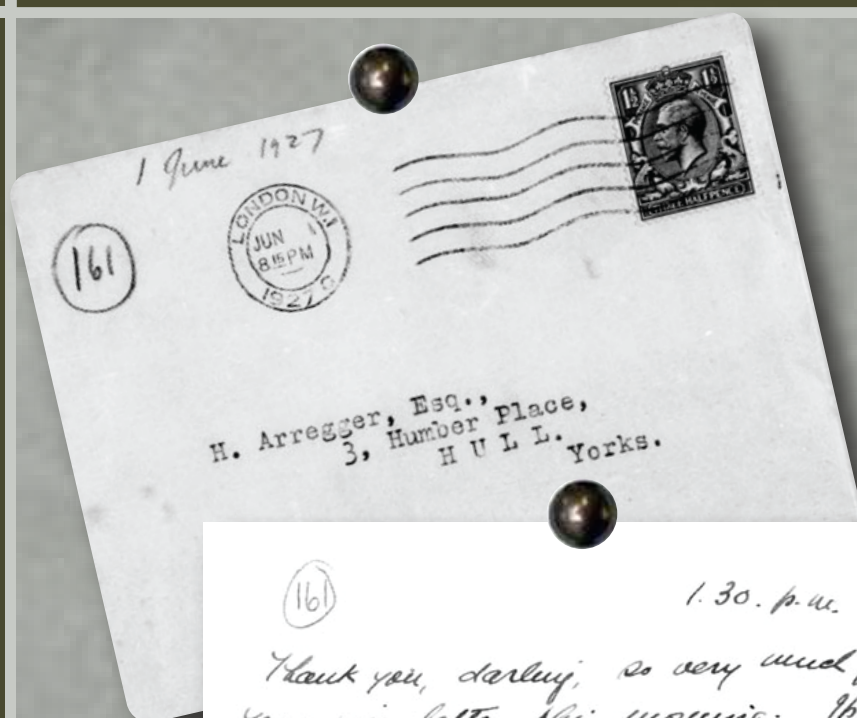 1 June 1927
161
LONDON W.1
JUN 1
8.15 PM
1927
1½ 1½
THREE HALFPENCE
H. Arregger, Esq.,
3, Humber Place,
H U L L.
Yorks.
161
1.30. p.m.
Thank you, darling, so very much
this morning.